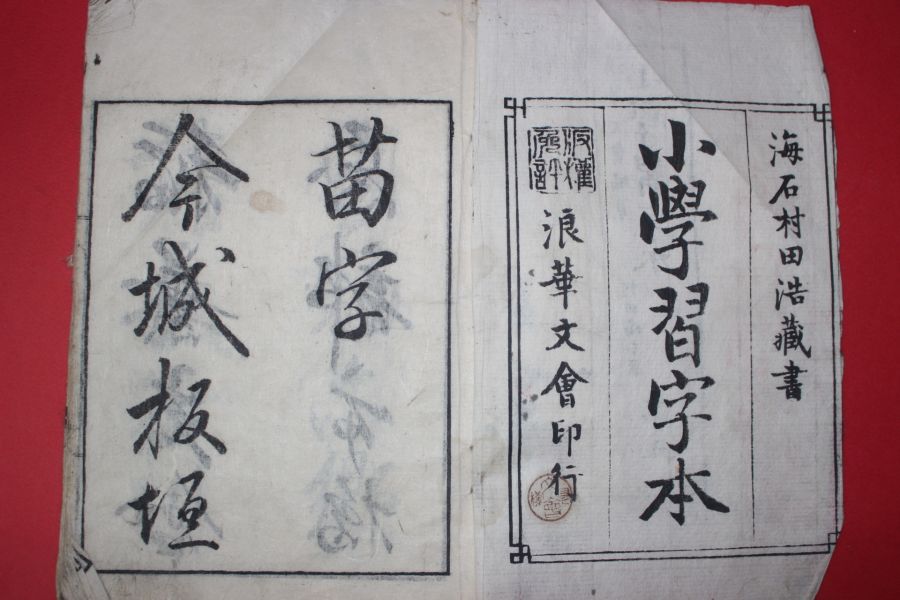 海石村田浩藏書
小學習字本
版權免許
浪華文會印行
苗字
今城板垣